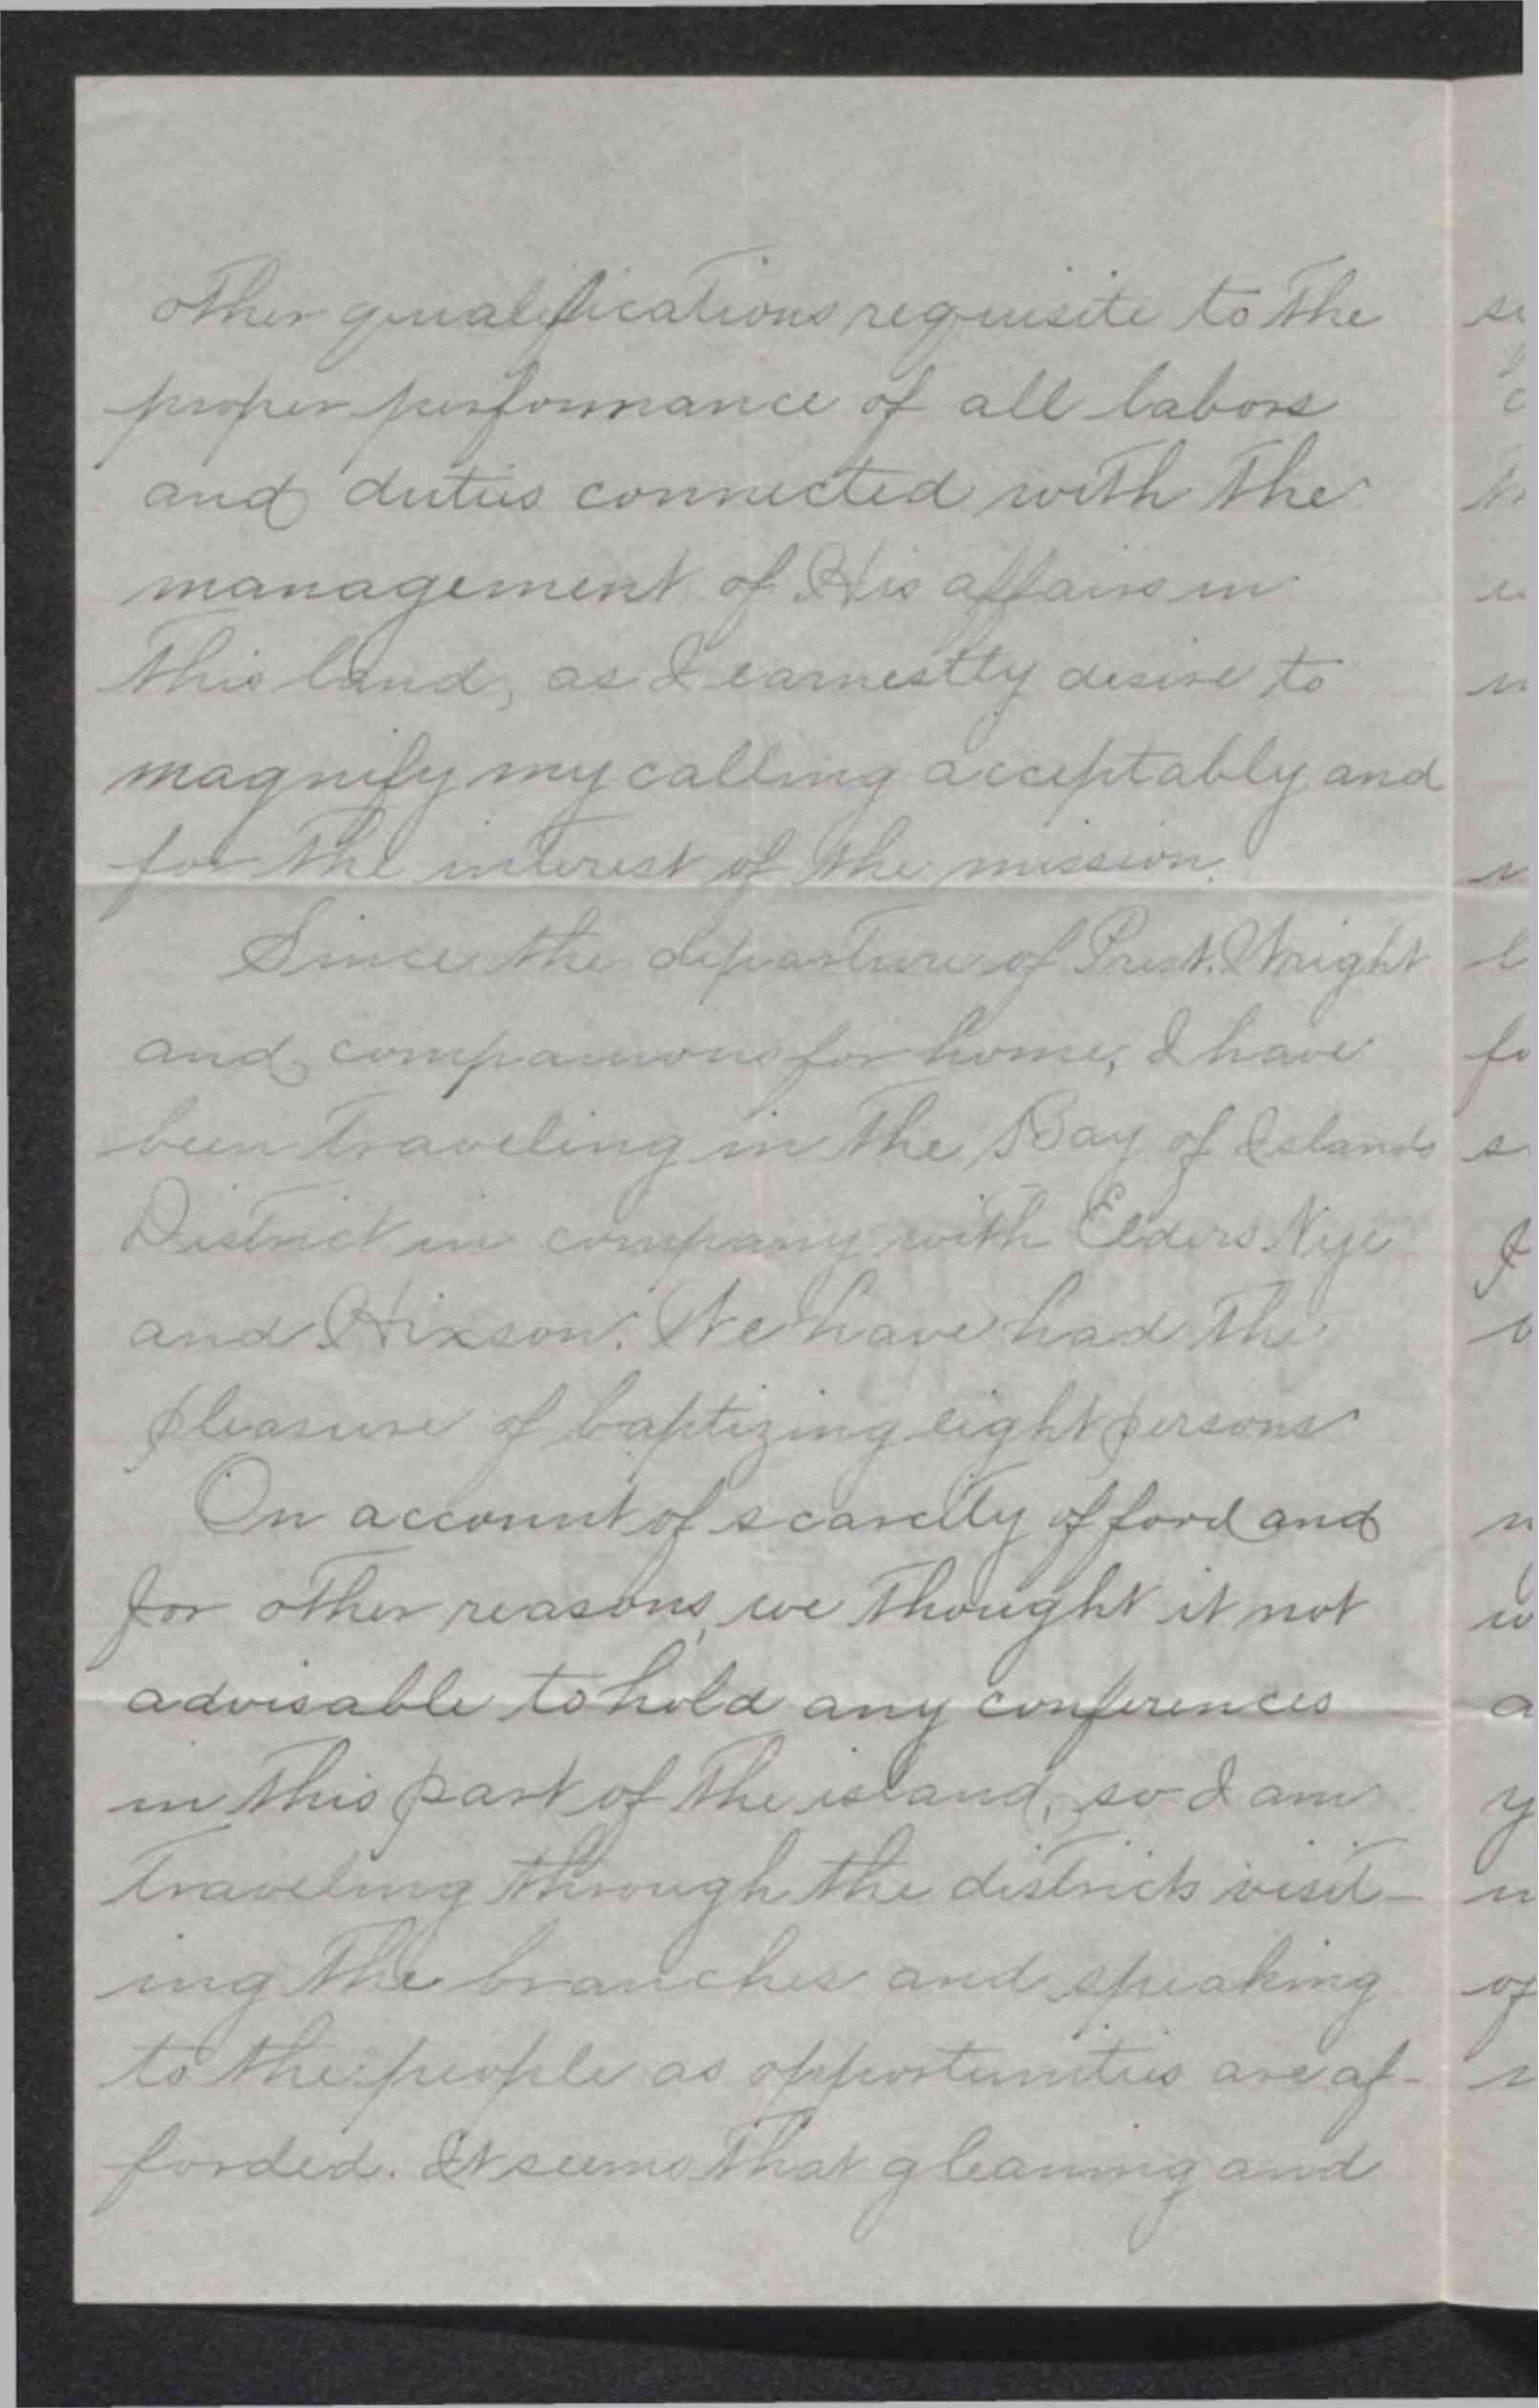 other qualifications requisite to the
proper performance of all labors
and duties connected with the
management of His affairs in
this land, as I earnestly desire to
magnify my calling acceptably and
for the interest of the mission.
Since the departure of Prest. Wright
and companions for home, I have
been traveling in the Bay of Islands
District in company with Elders Nye
and Hixson. We have had the
pleasure of baptizing eight persons
On account of scarcity of food and
for other reasons, we thought it not
advisable to hold any conferences
in this part of the island, so I am
traveling through the districts visit-
ing the branches and speaking
to the people as opportunities are af-
forded. It seems that gleaning and